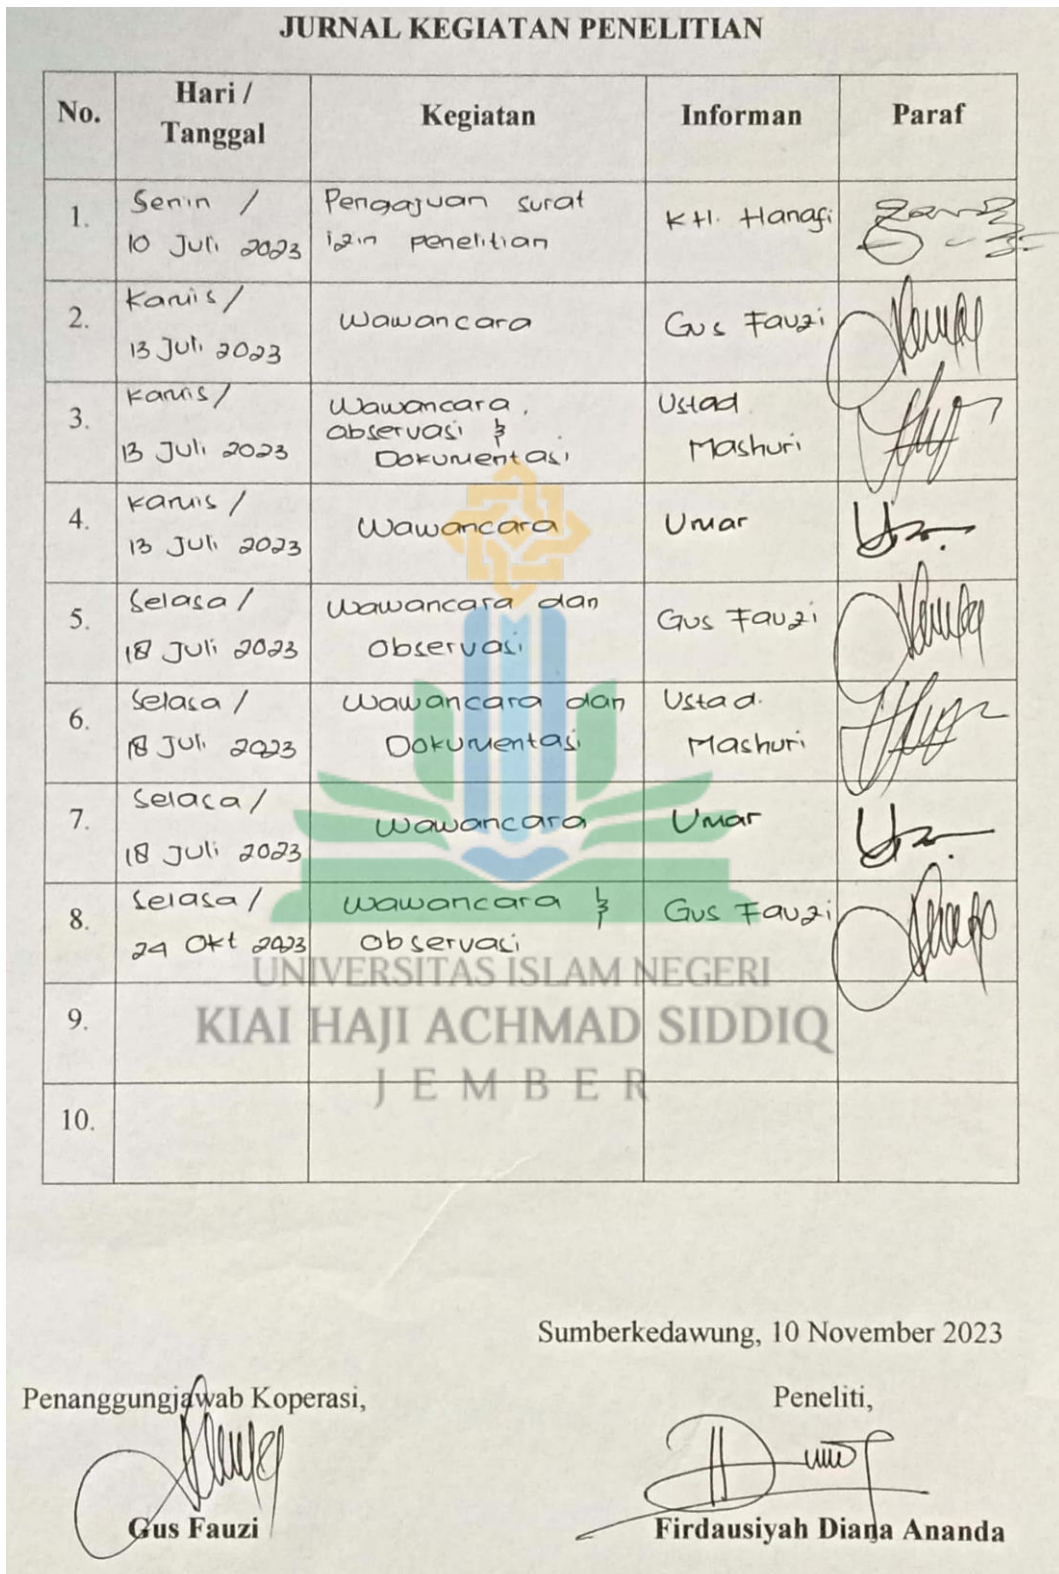 JURNAL KEGIATAN PENELITIAN
No.
Hari /
Tanggal
Kegiatan
Informan
Paraf
1.
Senin /
10 Juli 2023
Pengajuan surat
izin penelitian
KH. Hanafi
2.
Kamis /
13 Juli 2023
Wawancara
Gus Fauzi
3.
Kamis /
13 Juli 2023
Wawancara,
observasi &
Dokumentasi
Ustad
Mashuri
4.
Kamis /
13 Juli 2023
Wawancara
Umar
5.
Selasa /
18 Juli 2023
Wawancara dan
Observasi
Gus Fauzi
6.
Selasa /
18 Juli 2023
Wawancara dan
Dokumentasi
Ustad.
Mashuri
7.
Selasa /
18 Juli 2023
Wawancara
Umar
8.
Selasa /
24 Okt 2023
Wawancara &
Observasi
Gus Fauzi
UNIVERSITAS ISLAM NEGERI
9.
KIAI HAJI ACHMAD SIDDIQ
JEMBER
10.
Sumberkedawung, 10 November 2023
Penanggungjawab Koperasi,
Peneliti,
Gus Fauzi
Firdausiyah Diana Ananda